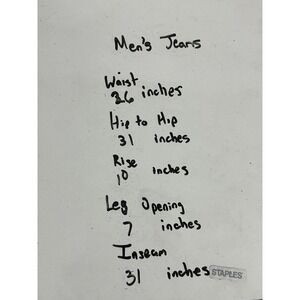 Men's Jeans
Waist
36 inches
Hip to Hip
31 inches
Rise
10 inches
Leg Opening
7 inches
Inseam
31 inches
STAPLES